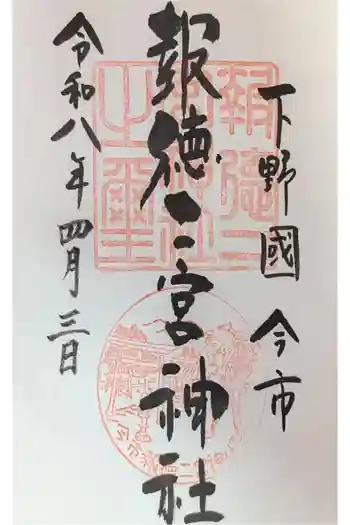 下野國 今市
報徳二宮神社
令和八年四月三日
報徳二宮神社之璽